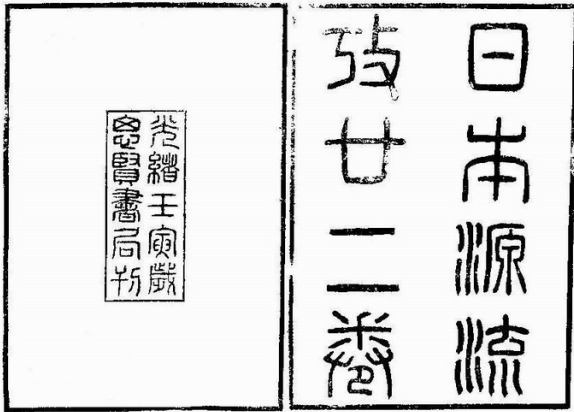 日本源流
攷廿二卷
光緒壬寅歲
思賢書局刊